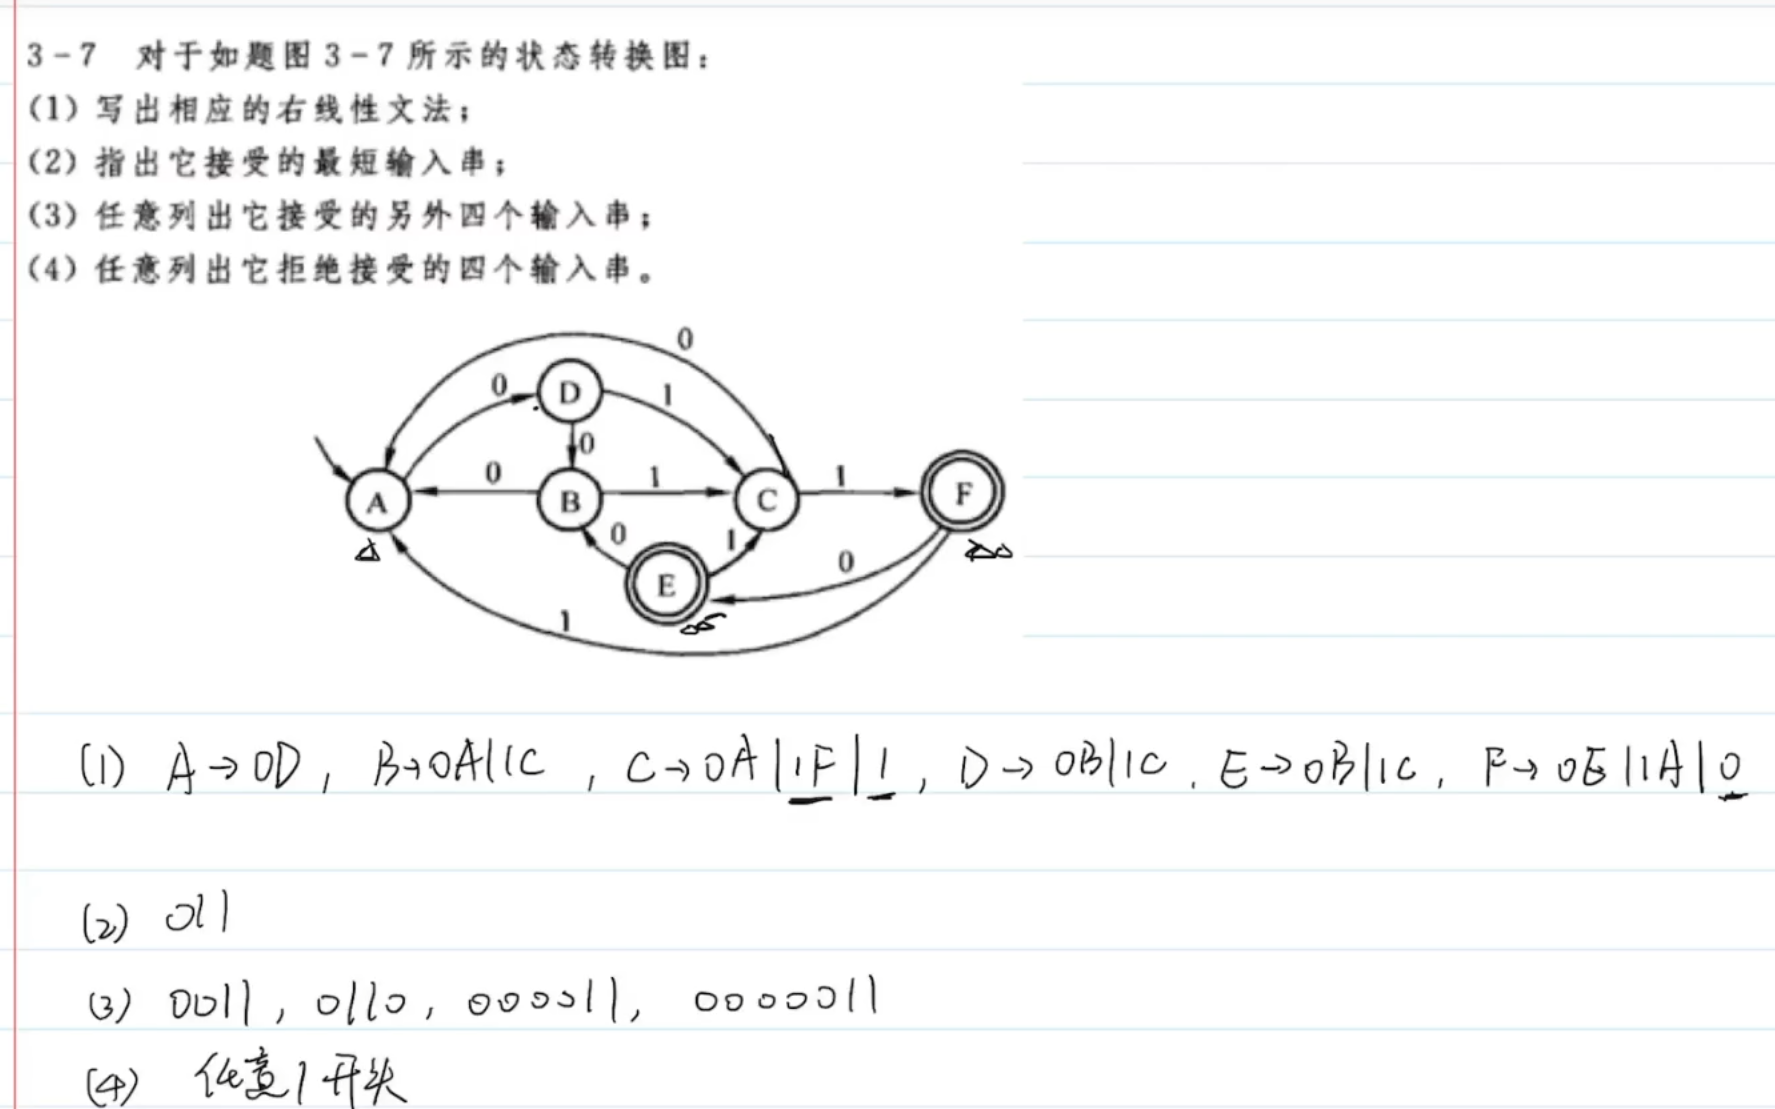 3-7 对于如题图3-7所示的状态转换图：
(1) 写出相应的右线性文法；
(2) 指出它接受的最短输入串；
(3) 任意列出它接受的另外四个输入串；
(4) 任意列出它拒绝接受的四个输入串。
0
0 D 1
0
A 0 B 1 C 1 F
0 E 1 0
1
(1) A→0D, B→0A|1C, C→0A|1F|1, D→0B|1C. E→0B|1C, F→0E|1A|0
(2) 011
(3) 0011, 0110, 000011, 0000011
(4) 任意1开头